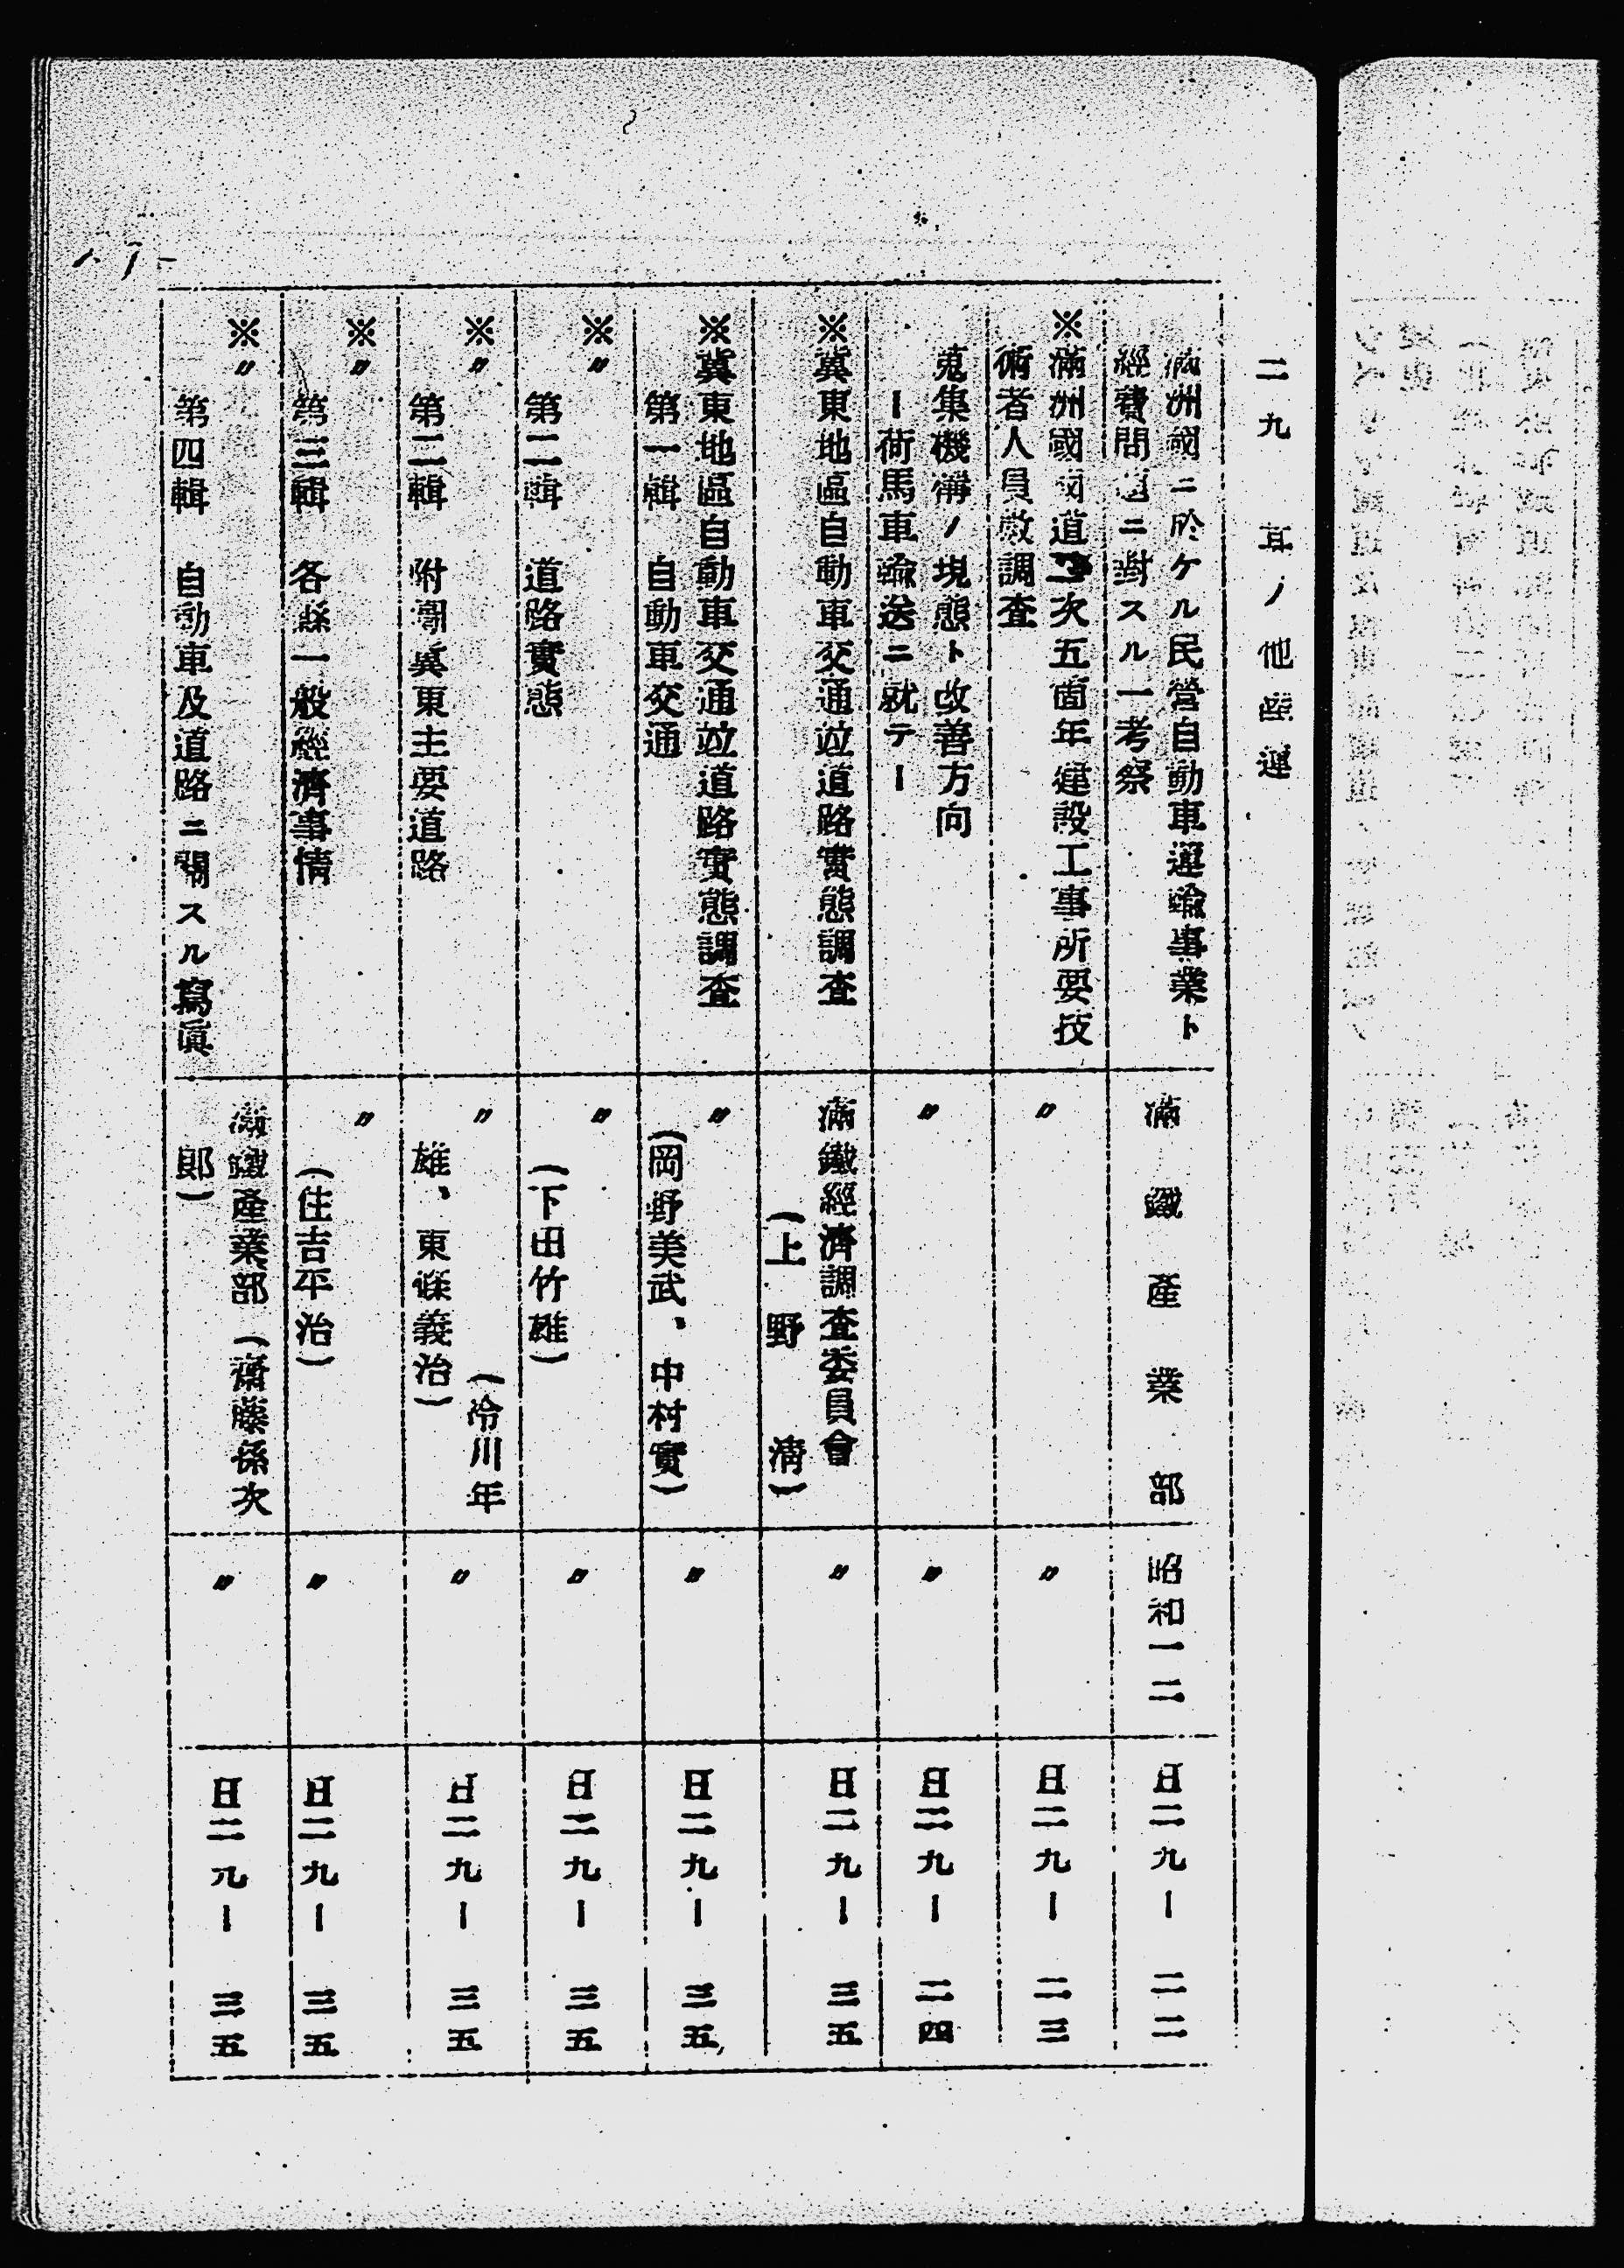 二九 其ノ他陸運
滿洲國ニ於ケル民營自動車運輸事業ト
經費問題ニ對スル一考察
滿鐵產業部
昭和一二
日二九ー二二
※滿洲國國道 次五箇年建設工事所要技
術者人員數調査
〃
〃
日二九ー二三
蒐集機構ノ現態ト改善方向
ー荷馬車輸送ニ就テー
〃
〃
日二九ー二四
※冀東地區自動車交通竝道路實態調査
滿鐵經濟調査委員會
(上野 淸)
〃
日二九ー三五
※冀東地區自動車交通竝道路實態調査
第一輯 自動車交通
〃
(岡野美武、中村實)
〃
日二九ー三五
※〃
第二輯 道路實態
〃
(下田竹雄)
〃
日二九ー三五
※〃
第二輯 附圖冀東主要道路
〃
(冷川年
雄、東條義治)
〃
日二九ー三五
※〃
第三輯 各縣一般經濟事情
〃
(住吉平治)
〃
日二九ー三五
※〃
第四輯 自動車及道路ニ關スル寫眞
滿鐵產業部(齋藤孫次
郎)
〃
日二九ー三五